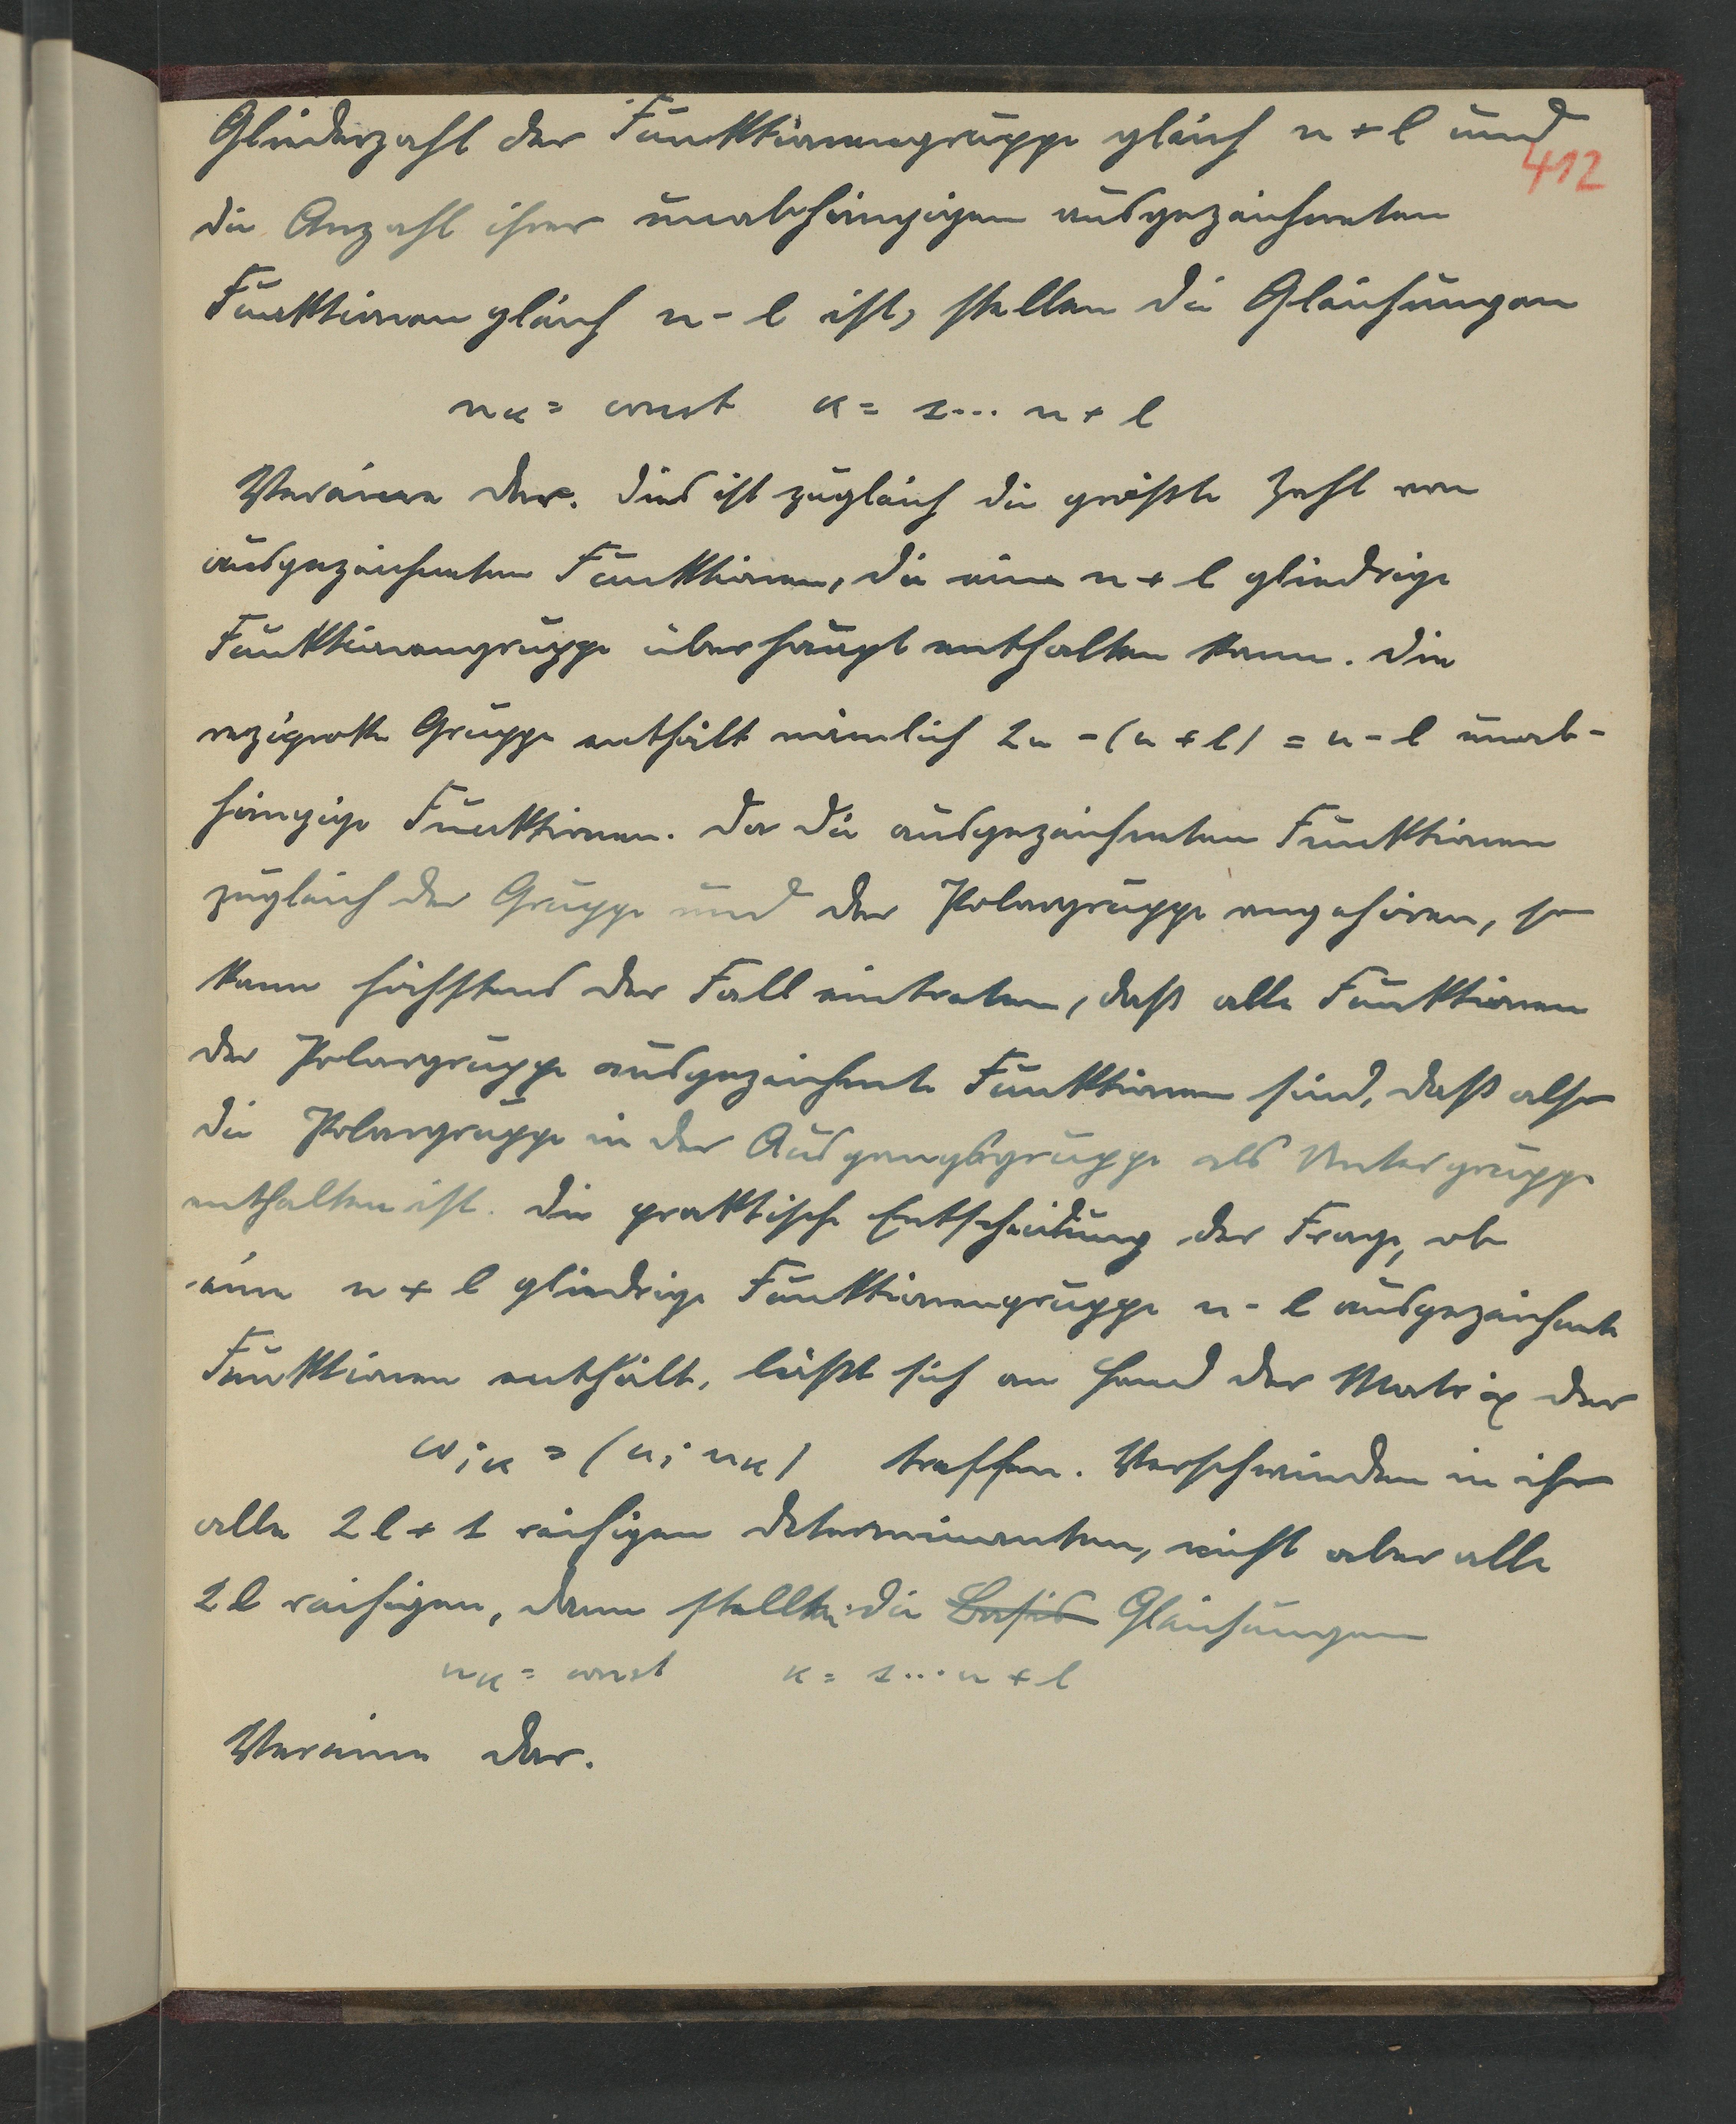 Gliederzahl der Funktionengruppe gleich n + l und
412
die Anzahl ihrer unabhängigen ausgezeichneten
Funktionen gleich n - l ist, stellen die Gleichungen
uκ = const κ = 1... n + l
Vereine dar. Dies ist zugleich die größte Zahl von
ausgezeichneten Funktionen, die eine n + l gliedrige
Funktionengruppe überhaupt enthalten kann. Die
reziproke Gruppe enthält nämlich 2n - (n + l) = n - l unab-
hängige Funktionen. Da die ausgezeichneten Funktionen
zugleich der Gruppe und der Polargruppe angehören, so
kann höchstens der Fall eintreten, daß alle Funktionen
der Polargruppe ausgezeichnete Funktionen sind, daß also
die Polargruppe in der Ausgangsgruppe als Untergruppe
enthalten ist. Die praktische Entscheidung der Frage, ob
eine n + l gliedrige Funktionengruppe n - l ausgezeichnete
Funktionen enthält, läßt sich an Hand der Matrix der
ωiκ = (ui uκ) treffen. Verschwinden in ihr
alle 2l + 1 reihigen Determinanten, nicht aber alle
2l reihigen, dann stellen die Basis Gleichungen
uκ = const κ = 1... n + l
Vereine dar.